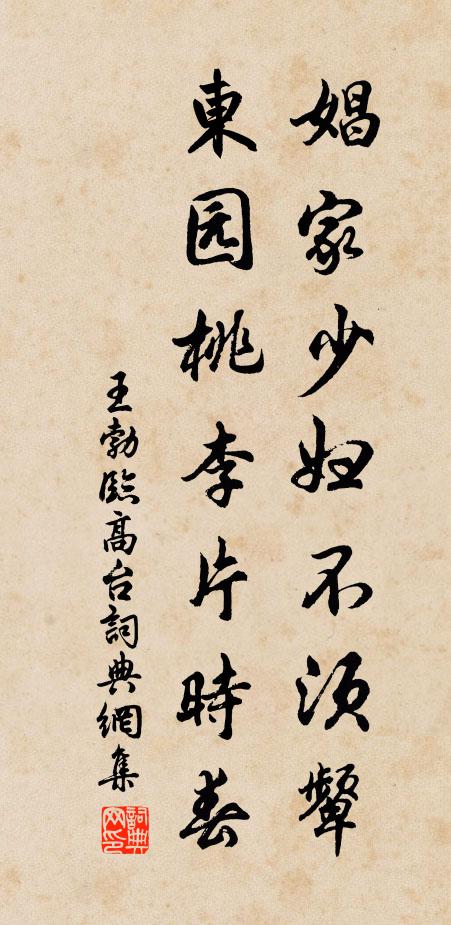 娼家少妇不须颦
東园桃李片時春
王勃臨高台詞典網集
詞典网印